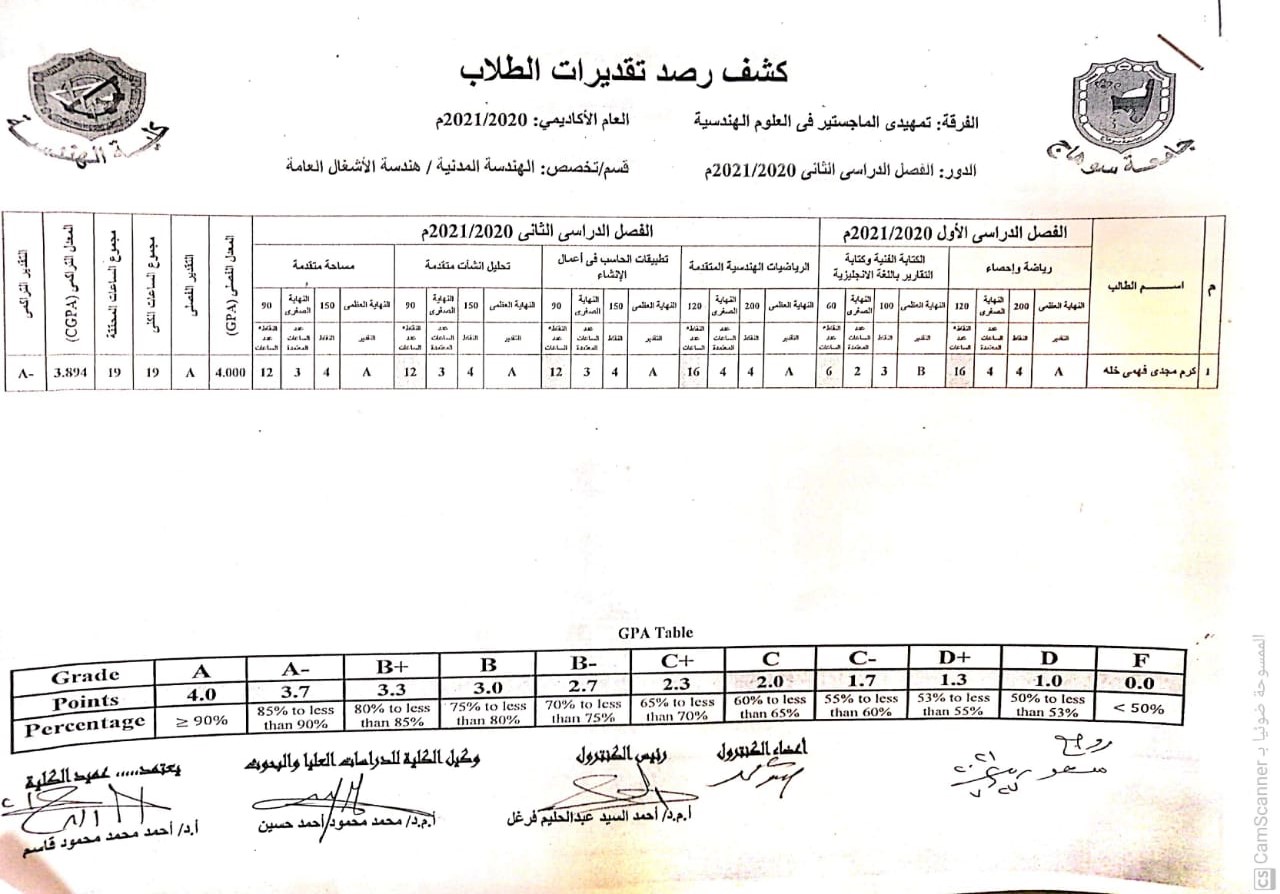 كشف رصد تقديرات الطلاب
جامعة سوهاج
كلية الهندسة
الفرقة: تمهيدى الماجستير فى العلوم الهندسية
العام الأكاديمي: 2021/2020م
الدور: الفصل الدراسى الثانى 2021/2020م
قسم/تخصص: الهندسة المدنية / هندسة الأشغال العامة
م
اســـــم الطالب
الفصل الدراسى الأول 2021/2020م
الفصل الدراسى الثانى 2021/2020م
المعدل الفصلى (GPA)
التقدير الفصلى
مجموع الساعات الكلى
مجموع الساعات المحققة
المعدل التراكمى (CGPA)
التقدير التراكمى
رياضة وإحصاء
الكتابة الفنية وكتابة التقارير باللغة الانجليزية
الرياضيات الهندسية المتقدمة
تطبيقات الحاسب فى أعمال الإنشاء
تحليل انشآت متقدمة
مساحة متقدمة
النهاية العظمى 200 النهاية الصغرى 120 النهاية العظمى 100 النهاية الصغرى 60 النهاية العظمى 200 النهاية الصغرى 120 النهاية العظمى 150 النهاية الصغرى 90 النهاية العظمى 150 النهاية الصغرى 90 النهاية العظمى 150 النهاية الصغرى 90
التقدير النقاط عدد الساعات المعتمدة النقاط* عدد الساعات التقدير النقاط عدد الساعات المعتمدة النقاط* عدد الساعات التقدير النقاط عدد الساعات المعتمدة النقاط* عدد الساعات التقدير النقاط عدد الساعات المعتمدة النقاط* عدد الساعات التقدير النقاط عدد الساعات المعتمدة النقاط* عدد الساعات التقدير النقاط عدد الساعات المعتمدة النقاط* عدد الساعات
1 كرم مجدى فهمى خله A 4 4 16 B 3 2 6 A 4 4 16 A 4 3 12 A 4 3 12 A 4 3 12 4.000 A 19 19 3.894 A-
GPA Table
Grade A A- B+ B B- C+ C C- D+ D F
Points 4.0 3.7 3.3 3.0 2.7 2.3 2.0 1.7 1.3 1.0 0.0
Percentage ≥ 90% 85% to less than 90% 80% to less than 85% 75% to less than 80% 70% to less than 75% 65% to less than 70% 60% to less than 65% 55% to less than 60% 53% to less than 55% 50% to less than 53% < 50%
أعضاء الكنترول
رئيس الكنترول
أ.م.د/ أحمد السيد عبدالحليم فرغل
وكيل الكلية للدراسات العليا والبحوث
أ.م.د/ محمد محمود أحمد حسين
يعتمد..... عميد الكلية
أ.د/ أحمد محمد محمود قاسم
الممسوحة ضوئيا بـ CamScanner
CS